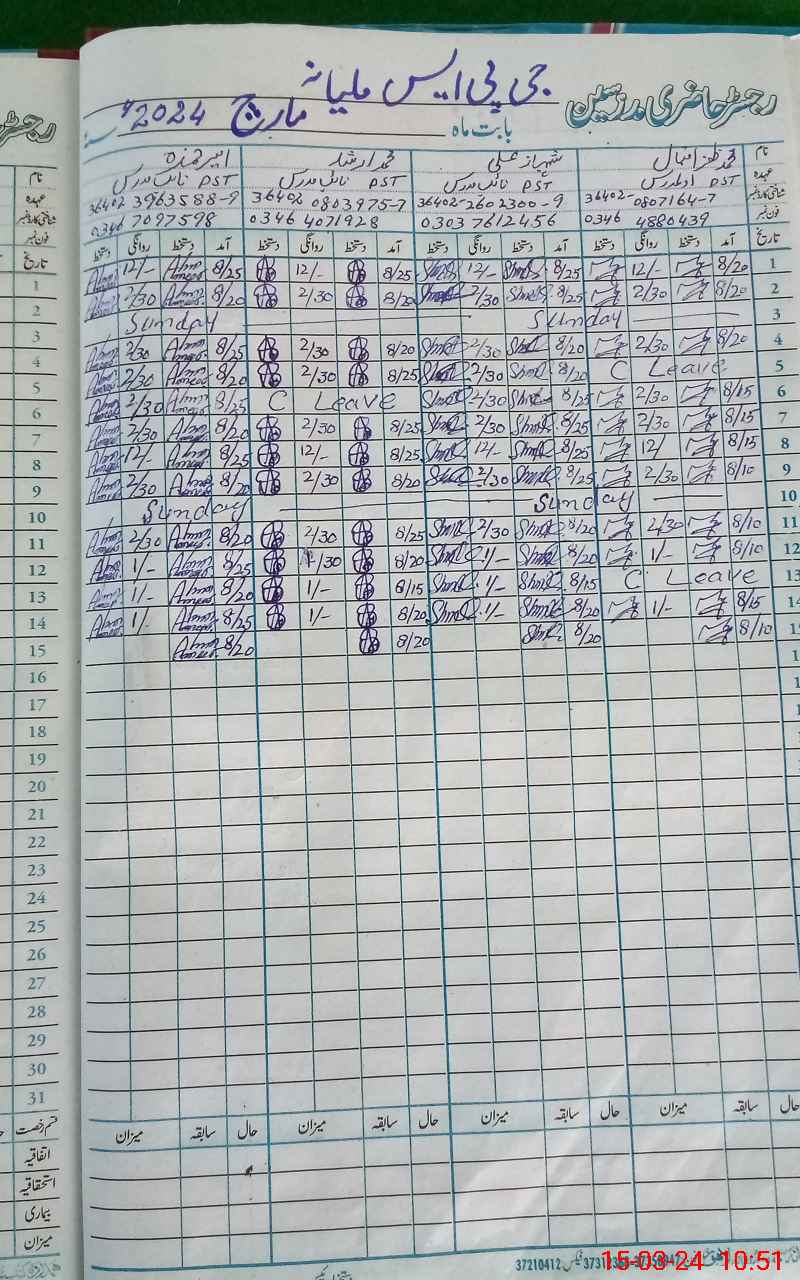 جی پی ایس ملیانہ
رجسٹر حاضری مدرسین بابت ماہ مارچ 2024ء
نام محمد ظفر اقبال شہباز علی محمد ارشد امیر حمزہ
عہدہ PST اول مدرس PST نائب مدرس PST نائب مدرس PST نائب مدرس
شناختی کارڈ نمبر 36402-0807164-7 36402-2602300-9 36402 0803975-7 36402 3963588-9
فون نمبر 0346 4880439 0303 7612456 0346 4071928 0346 7097598
تاریخ آمد دستخط روانگی دستخط آمد دستخط روانگی دستخط آمد دستخط روانگی دستخط آمد دستخط روانگی دستخط
1 8/20 12/- 8/25 12/- 8/25 12/- 8/25 12/-
2 8/20 2/30 8/25 2/30 8/20 2/30 8/20 2/30
3 Sunday Sunday
4 8/20 2/30 8/20 2/30 8/20 2/30 8/25 2/30
5 C Leave 8/20 2/30 8/25 2/30 8/20 2/30
6 8/15 2/30 8/25 2/30 C Leave 8/25 2/30
7 8/15 2/30 8/25 2/30 8/25 2/30 8/20 2/30
8 8/15 12/ 8/25 12/- 8/25 12/- 8/25 12/-
9 8/10 2/30 8/25 2/30 8/20 2/30 8/20 2/30
10 Sunday Sunday
11 8/10 2/30 8/20 2/30 8/25 2/30 8/20 2/30
12 8/10 1/- 8/20 1/- 8/20 8/25 1/-
13 C Leave 8/15 1/- 8/15 1/- 8/20 1/-
14 8/15 1/- 8/20 1/- 8/20 1/- 8/25 1/-
15 8/10 8/20 8/20 8/20
16
17
18
19
20
21
22
23
24
25
26
27
28
29
30
31
قسم رخصت حال سابقہ میزان حال سابقہ میزان حال سابقہ میزان حال سابقہ میزان
اتفاقیہ
استحقاقیہ
بیماری
میزان
فیکس 37210412
15-03-24 10:51